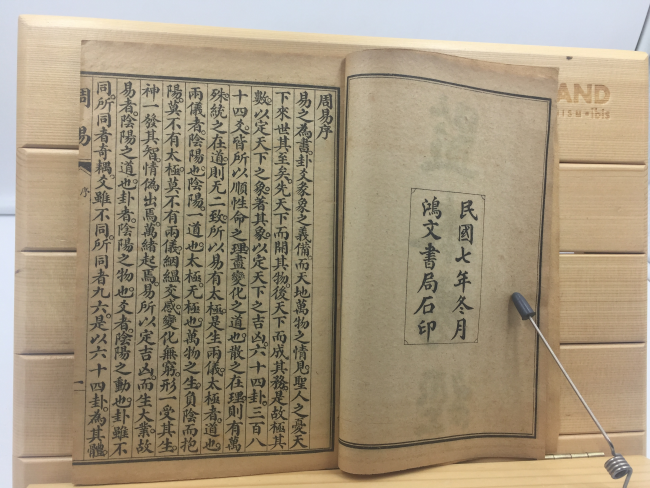 民國七年冬月
鴻文書局石印
周易序
易之為書卦爻彖象之義備而天地萬物之情見聖人之憂天
下來世其至矣先天下而開其物後天下而成其務是故極其
數以定天下之象著其象以定天下之吉凶六十四卦三百八
十四爻皆所以順性命之理盡變化之道也散之在理則有萬
殊統之在道則无二致所以易有太極是生兩儀太極者道也
兩儀者陰陽也陰陽一道也太極无極也萬物之生負陰而抱
陽莫不有太極莫不有兩儀絪縕交感變化無窮形一受其生
神一發其智情偽出焉萬緒起焉易所以定吉凶而生大業故
易者陰陽之道也卦者陰陽之物也爻者陰陽之動也卦雖不
同所同者奇耦爻雖不同所同者九六是以六十四卦為其體
周易 序 一
AND
isu•ibis